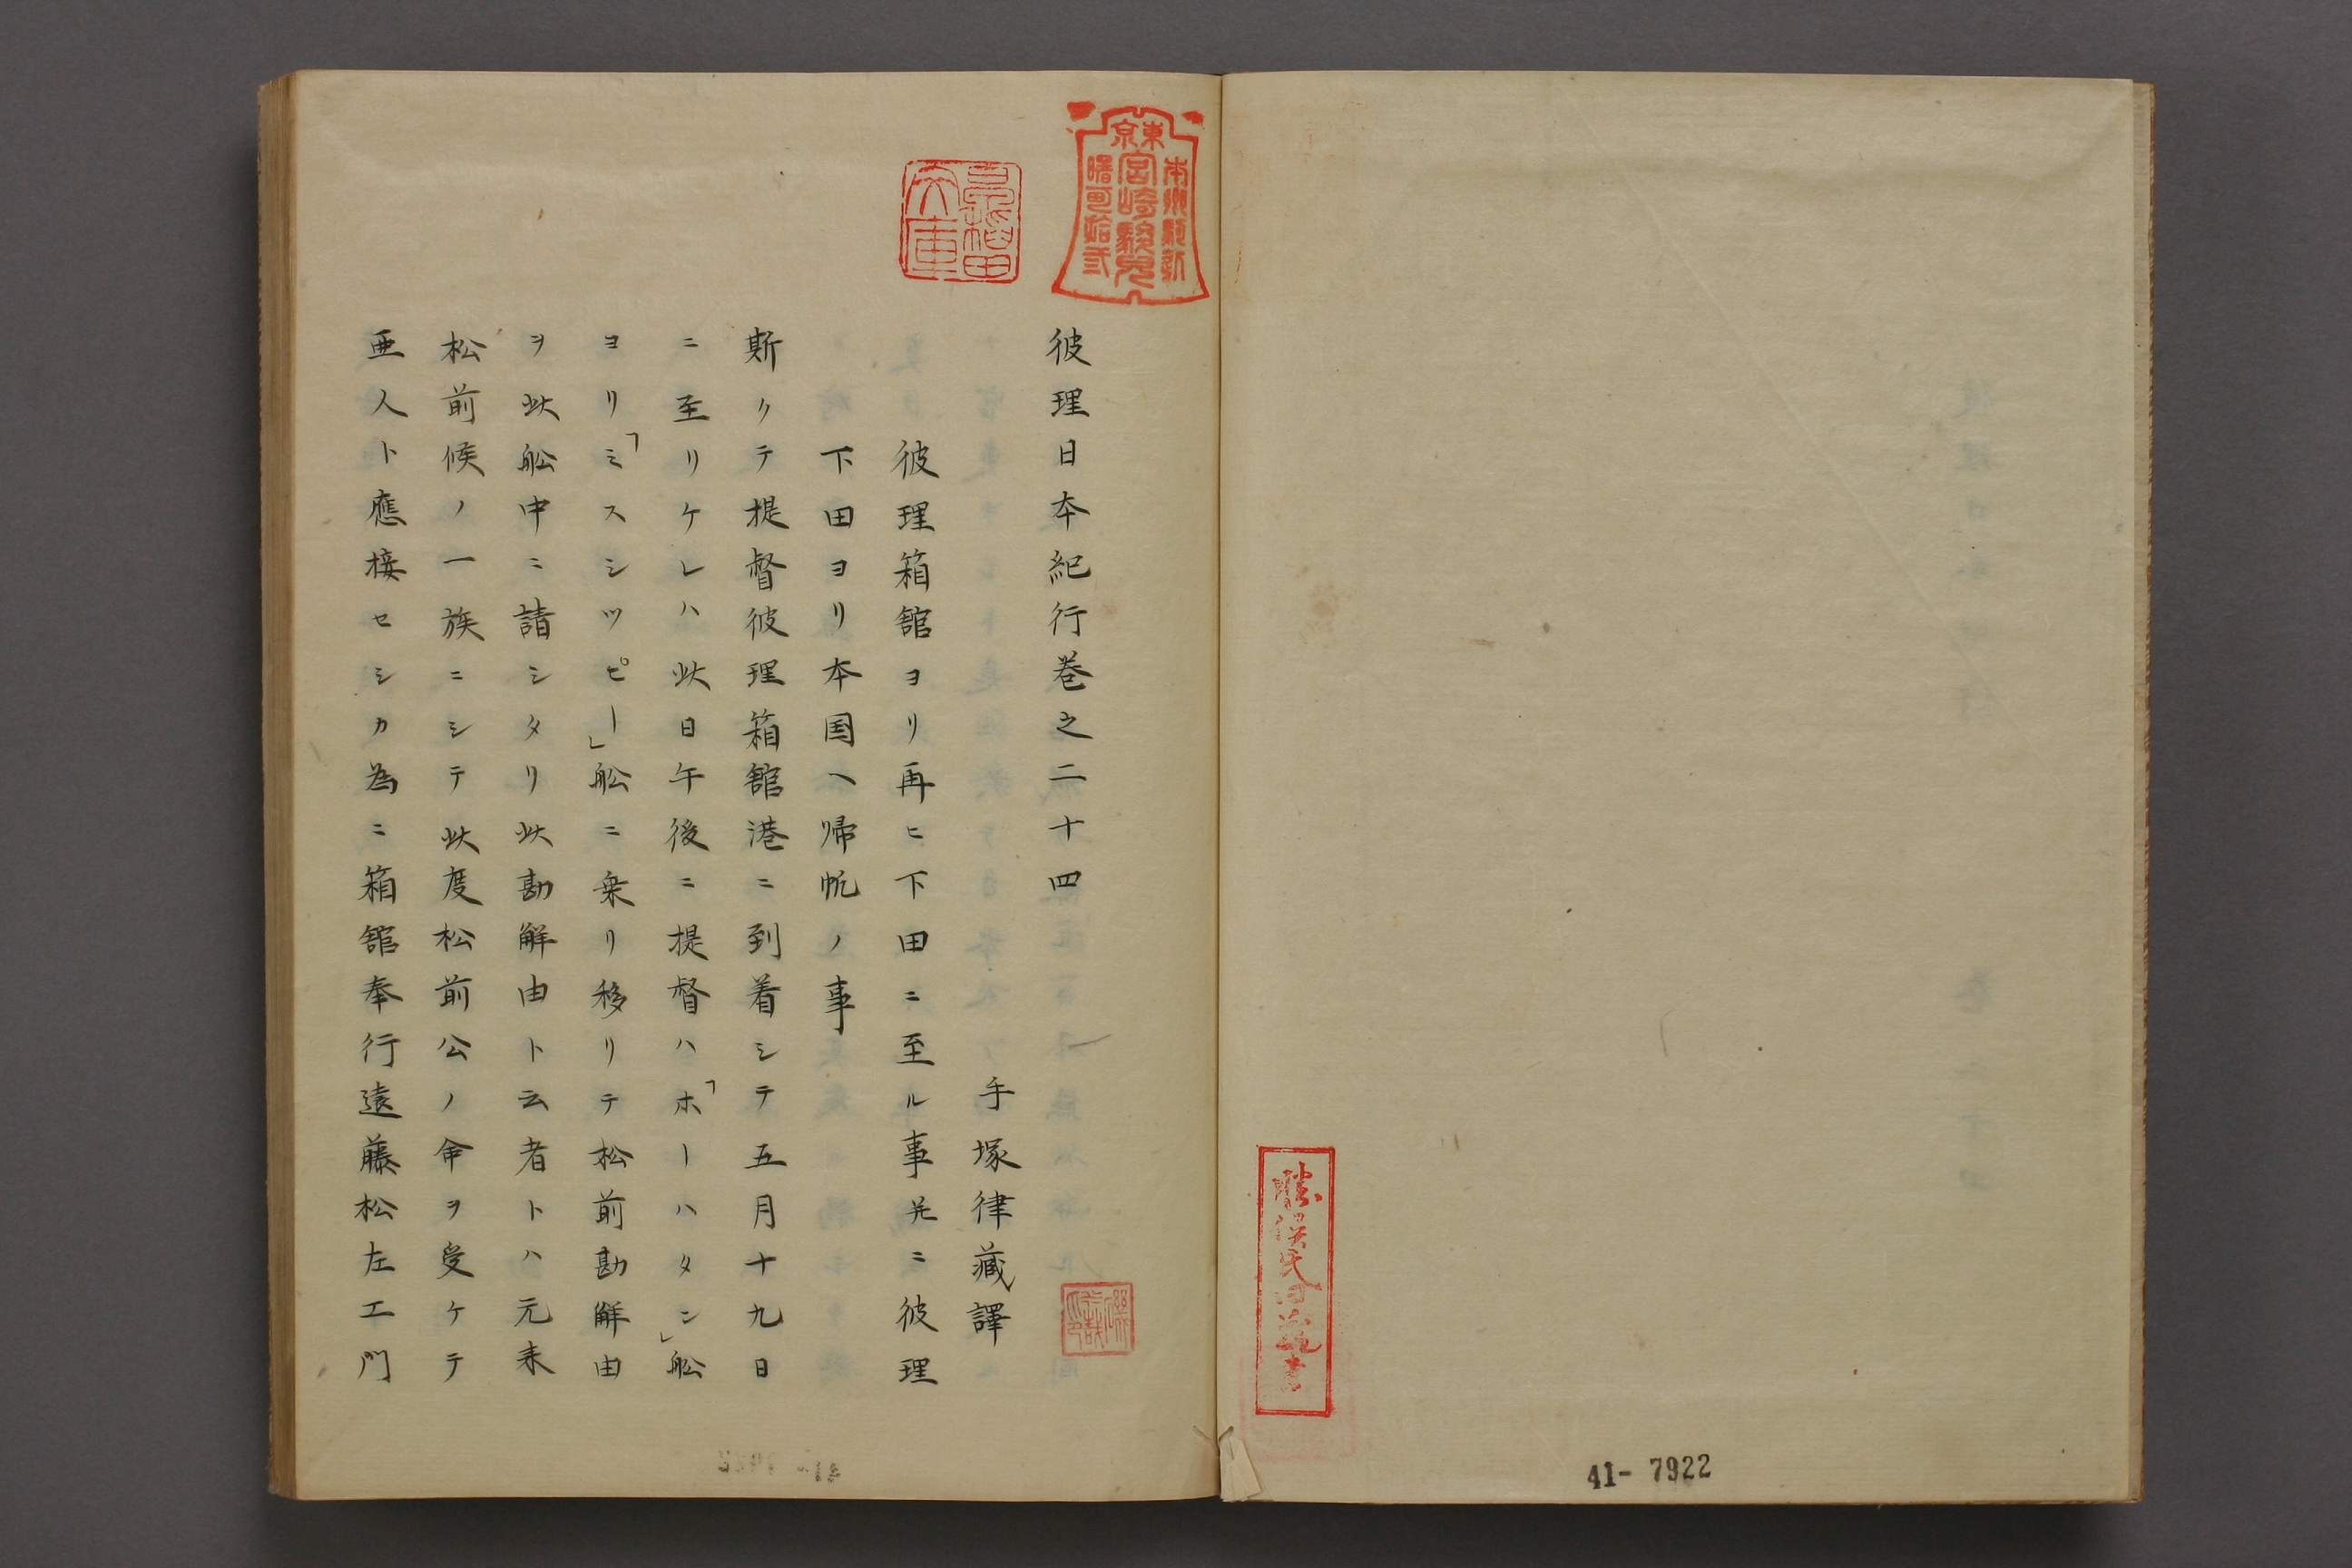 41-7922
東京
宮崎駿児
彼理日本紀行巻之二十四
手塚律蔵譯
彼理箱館ヨリ再ヒ下田ニ至ル事并ニ彼理
下田ヨリ本国ヘ帰帆ノ事
斯クテ提督彼理箱館港ニ到着シテ五月十九日
ニ至リケレハ此日午後ニ提督ハ「ホーハタン」舩
ヨリ「ミスシツピー」舩ニ乗リ移リテ松前勘解由
ヲ此舩中ニ請シタリ此勘解由ト云者トハ元来
松前候ノ一族ニシテ此度松前公ノ命ヲ受ケテ
亜人ト應接セシカ為ニ箱館奉行遠藤松左工門